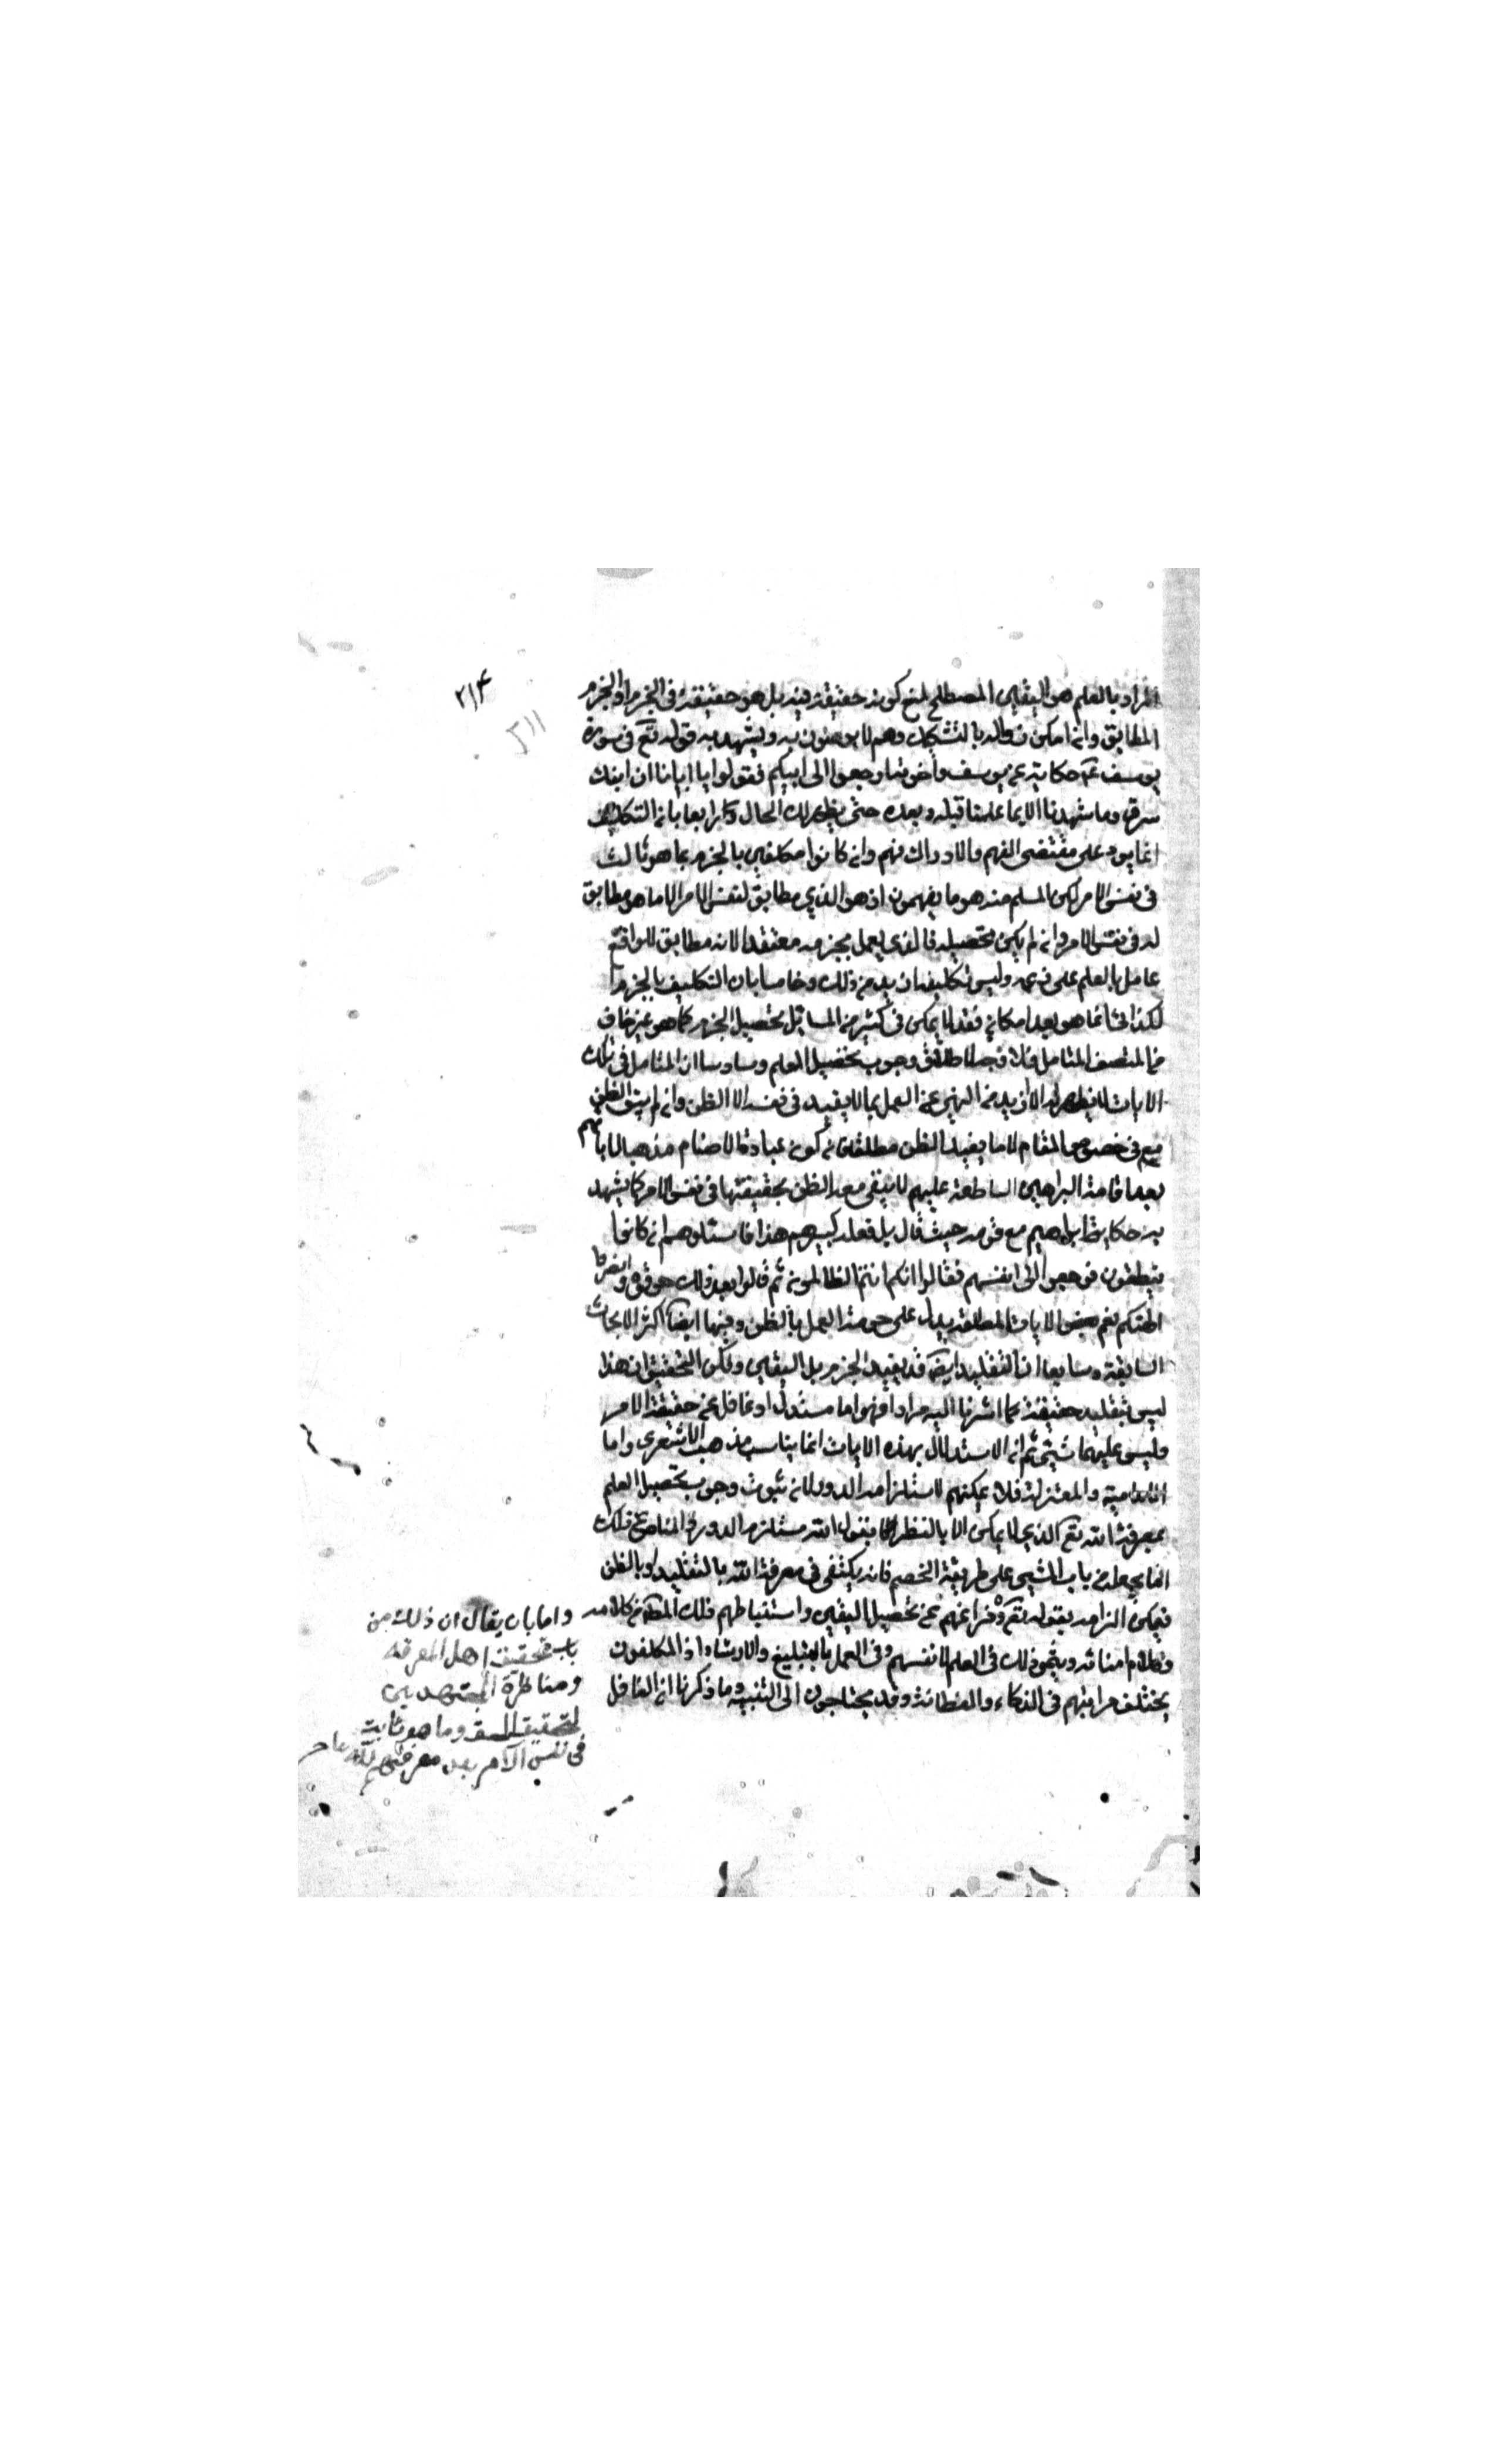 المراد بالعلم هو اليقين المصطلح لمنع كونه حقيقة فيه بل هو حقيقة في الجزم او الجزم
المطابق وان امكن زواله بالتشكيك وهم لا يوصفون به ويشهد به قوله تع في سورة
يوسف حكاية عن يوسف واخوته ارجعوا الى ابيكم فقولوا يا ابانا ان ابنك
سرق وما شهدنا الا بما علمنا قبله وبعده حتى يظهر لك الحال ورابعا بان التكليف
انما يرد على مقتضى الفهم والادراك فهم وان كانوا مكلفين بالجزم بما هو ثابت
في نفس الامر لكن المسلم منه هو ما يفهمون اذ هو الذي مطابق لنفس الامر لا ما هو مطابق
له في نفس الامر وان لم يكن بتحصيله فالذي يعمل بجزمه معتقدا لانه مطابق للواقع
عامل بالعلم على زعمه وليس تكليفه ازيد من ذلك وخامسا بان التكليف بالجزم
لكذائي انما هو بعد امكانه فقد لا يمكن في كثير من المسائل تحصيل الجزم كما هو غير خاف
المنصف المتامل فلا وجه لاطلاق وجوب تحصيل العلم وسادسا ان المتامل في تلك
الايات لا يظهر له الا ازيد من النهي عن العمل بما لا يفيد في نفسه الا الظن وان لم يبق الظن
مع في خصوص المقام لا ما يفيد الظن مطلقا فان كون عبادة الاصنام مذهبا لابائهم
بعد اقامة البراهين الساطعة عليهم لا يبقى معه الظن بحقيقتها في نفس الامر كما يشهد
به حكاية ابراهيم مع قومه حيث قال بل فعله كبيرهم هذا فاسئلوهم ان كانوا
ينطقون فرجعوا الى انفسهم فقالوا انكم انتم الظالمون ثم قالوا بعد ذلك حرقوه وانصروا
الهتكم نعم بعض الايات المطلقة يدل على حرمة العمل بالظن وفيها ايضا اكثر الابحاث
السابقة وسابعا ان التقليد ايضا قد يفيد الجزم بل اليقين ولكن التحقيق ان هذا
ليس بتقليد حقيقة كما اشرنا اليه مرارا فهو اما مستدل او غافل عن حقيقة الامر
وليس عليهما شيئ ثم ان الاستدلال بهذه الايات انما يناسب مذهب الاشعري واما
الامامية والمعتزلة فلا يمكنهم لاستلزامه الدور لان ثبوت وجوب تحصيل العلم
بمعرفة الله تع الذي لا يمكن الا بالنظر بقول الله مستلزم الدور والمناص عن ذلك
انما يجعله من باب المشي على طريقة الخصم فانه يكتفي في معرفة الله بالتقليد او بالظن
فيمكن الزامه بقوله تع وفراغهم عن تحصيل اليقين واستنباطهم ذلك المطلب من كلامه
وكلام امنائه ويتم ذلك في العلم لانفسهم وفي العمل بالتبليغ والارشاد اذ المكلفون
يختلف مراتبهم في الذكاء والفطانة وقد يحتاجون الى التنبيه وما ذكرنا ان الغافل
واما بان يقال ان ذلك من
باب تحقيق اهل المعرفة
ومناظرة المجتهدين
لتحقيق وما هو ثابت
في نفس الامر بعد معرفتهم لله
٢١٤
٢١١